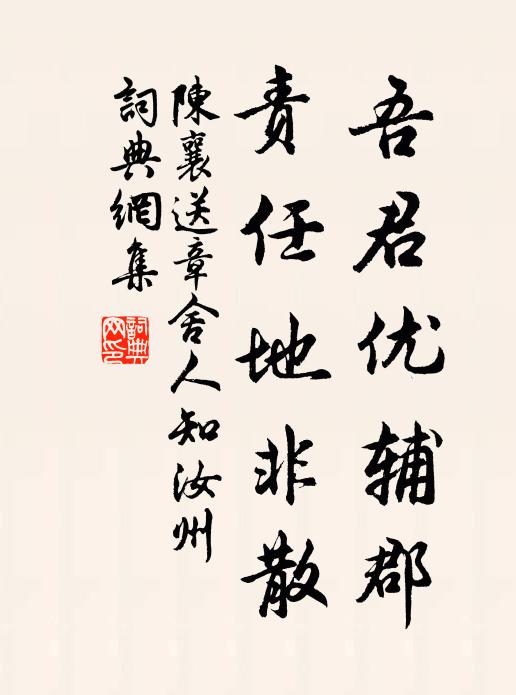 吾君优辅郡
责任地非散
陳襄送章舍人知汝州
詞典網集
詞典網印